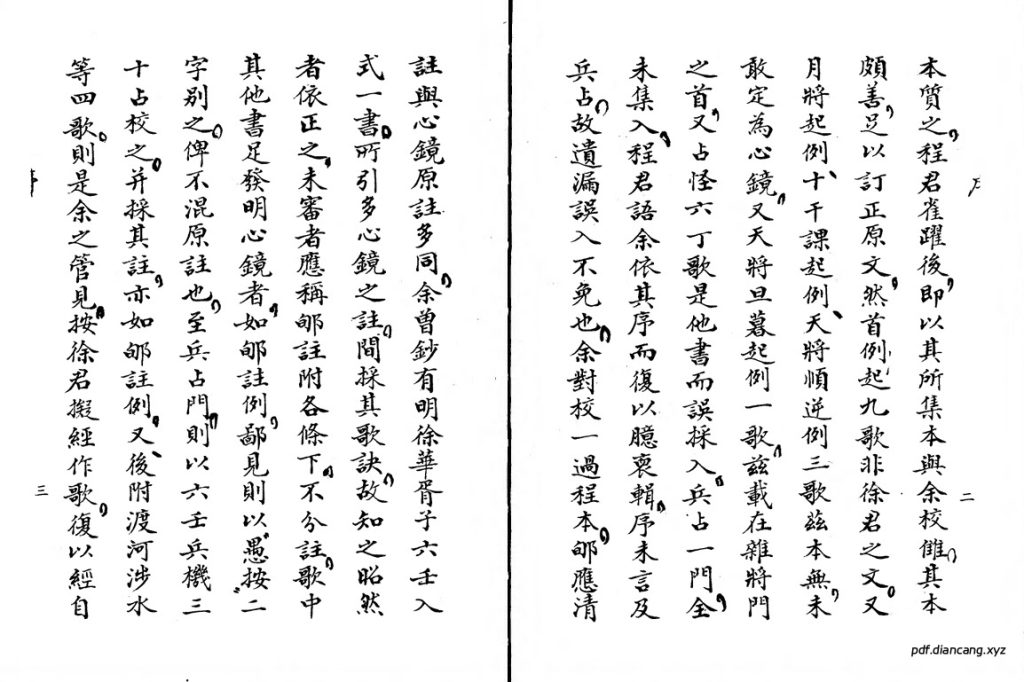 本質之，程君雀躍後，即以其所集本與余校讎，其本
頗善，足以訂正原文，然首例起九歌非徐君之文。又
月將起例、十干課起例、天將順逆例三歌茲本無，未
敢定為心鏡，又天將旦暮起例一歌，茲載在雜將門
之首，又占怪六丁歌是他書而誤採入，兵占一門全
未集入，程君語余依其序而復以臆裒輯，序未言及
兵占，故遺漏誤入不免也，余對校一過程本，邮應清
二
註與心鏡原註多同，余曾鈔有明徐華胥子六壬入
式一書，所引多心鏡之註，間採其歌訣，故知之昭然
者依正之，未審者應稱邮註附各條下，不分註歌，中
其他書足發明心鏡者，如邮註例，鄙見則以“愚按”二
字別之，俾不混原註也，至兵占門，則以六壬兵機三
十占校之，并採其註，亦如邮註例，又、後附渡河涉水
等四歌，則是余之管見，按徐君擬經作歌，復以經自
三
pdf.diancang.xyz